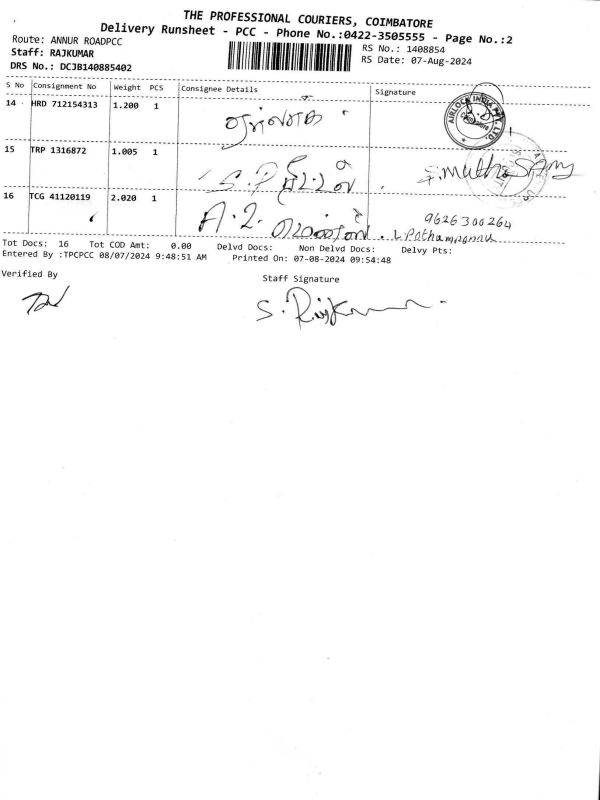 THE PROFESSIONAL COURIERS, COIMBATORE
Delivery Runsheet - PCC - Phone No.:0422-3505555 - Page No.:2
Route: ANNUR ROADPCC
RS No.: 1408854
Staff: RAJKUMAR
RS Date: 07-Aug-2024
DRS No.: DCJB140885402
S No Consignment No Weight PCS Consignee Details Signature
14 HRD 712154313 1.200 1 ஏர்லாக்
AIRLOCK INDIA PVT. LTD.
15 TRP 1316872 1.005 1 S.P
S.MuthuSAmy
16 TCG 41120119 2.020 1 A.2.
9626300264
Tot Docs: 16 Tot COD Amt: 0.00 Delvd Docs: Non Delvd Docs: Delvy Pts:
Entered By :TPCPCC 08/07/2024 9:48:51 AM Printed On: 07-08-2024 09:54:48
Verified By
Staff Signature
S. Rajkumar